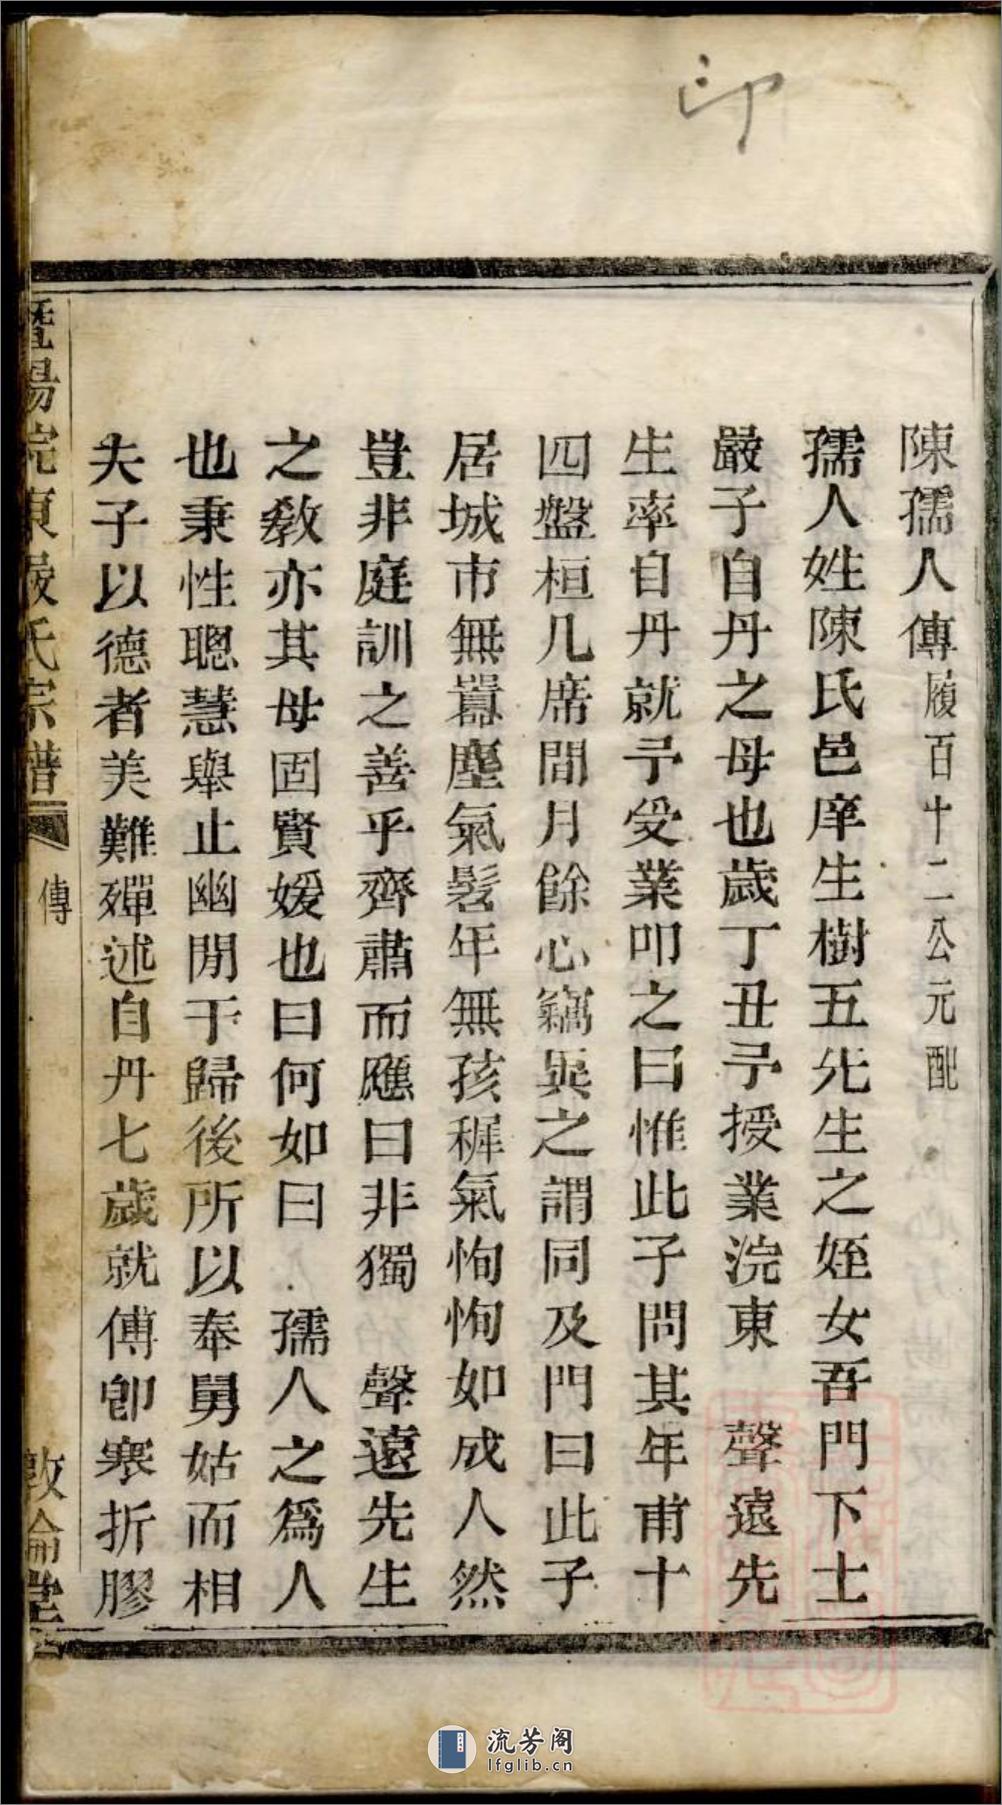 印
陳孺人傳履百十二公元配
孺人姓陳氏邑庠生樹五先生之姪女吾門下士
嚴子自丹之母也歲丁丑予授業浣東 聲遠先
生率自丹就予受業叩之曰惟此子問其年甫十
四盤桓几席間月餘心竊異之謂同及門曰此子
居城市無囂塵氣髫年無孩穉氣恂恂如成人然
豈非庭訓之善乎齊肅而應曰非獨 聲遠先生
之教亦其母固賢媛也曰何如曰 孺人之為人
也秉性聰慧舉止幽閒于歸後所以奉舅姑而相
夫子以德者美難殫述自丹七歲就傅卽寒折膠
暨陽浣東嚴氏宗譜 傳 敦倫堂
流芳阁
lfglib.cn